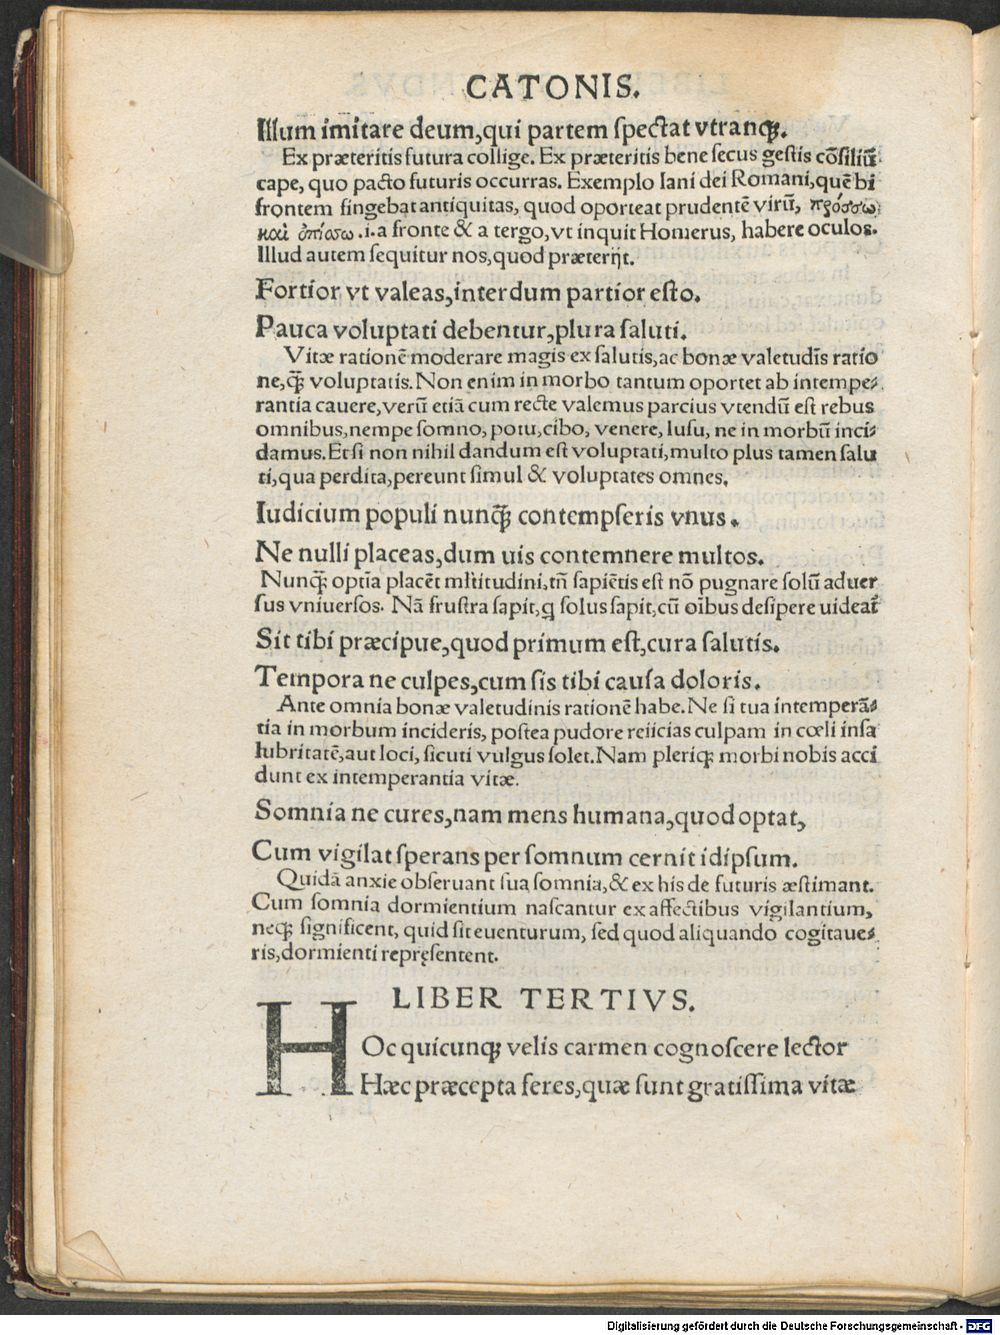 CATONIS.
Illum imitare deum,qui partem ſpectat vtranq;.
Ex præteritis futura collige. Ex præteritis bene ſecus geſtis cõſiliũ
cape, quo pacto futuris occurras. Exemplo Iani dei Romani,quẽ bi
frontem fingebat antiquitas, quod oporteat prudentẽ virũ, πρόσσω
καὶ ὀπίσσω .i.a fronte & a tergo,vt inquit Homerus, habere oculos.
Illud autem ſequitur nos,quod præterijt.
Fortior vt valeas,interdum partior eſto.
Pauca voluptati debentur,plura ſaluti.
Vitæ rationẽ moderare magis ex ſalutis,ac bonæ valetudĩs ratio
ne,q̃ȝ voluptatis. Non enim in morbo tantum oportet ab intempe⸗
rantia cauere,verũ etiã cum recte valemus parcius vtendũ eſt rebus
omnibus,nempe ſomno, potu,cibo, venere, luſu, ne in morbũ inci⸗
damus.Et ſi non nihil dandum eſt voluptati,multo plus tamen ſalu
ti,qua perdita,pereunt ſimul & voluptates omnes.
Iudicium populi nunq̃ȝ contempſeris vnus.
Ne nulli placeas,dum uis contemnere multos.
Nunq̃ȝ optĩa placẽt ml̃titudini,tñ ſapiẽtis eſt nõ pugnare ſolũ aduer
ſus vniuerſos. Nã fruſtra ſapit,q ſolus ſapit,cũ oĩbus deſipere uideat̃
Sit tibi præcipue,quod primum eſt,cura ſalutis.
Tempora ne culpes,cum ſis tibi cauſa doloris.
Ante omnia bonæ valetudinis rationẽ habe.Ne ſi tua intemperã⸗
tia in morbum incideris, poſtea pudore reiicias culpam in cœli inſa
lubritatẽ,aut loci, ſicuti vulgus ſolet.Nam pleriq; morbi nobis acci
dunt ex intemperantia vitæ.
Somnia ne cures,nam mens humana,quod optat,
Cum vigilat ſperans per ſomnum cernit idipſum.
Quidã anxie obſeruant ſua ſomnia,& ex his de futuris æſtimant.
Cum ſomnia dormientium naſcantur ex affectibus vigilantium,
neq; ſignificent, quid ſit euenturum, ſed quod aliquando cogitaue⸗
ris,dormienti repręſentent.
LIBER TERTIVS.
HOc quicunq; velis carmen cognoſcere lector
Hæc præcepta feres,quæ ſunt gratiſſima vitæ
Digitalisierung gefördert durch die Deutsche Forschungsgemeinschaft - DFG